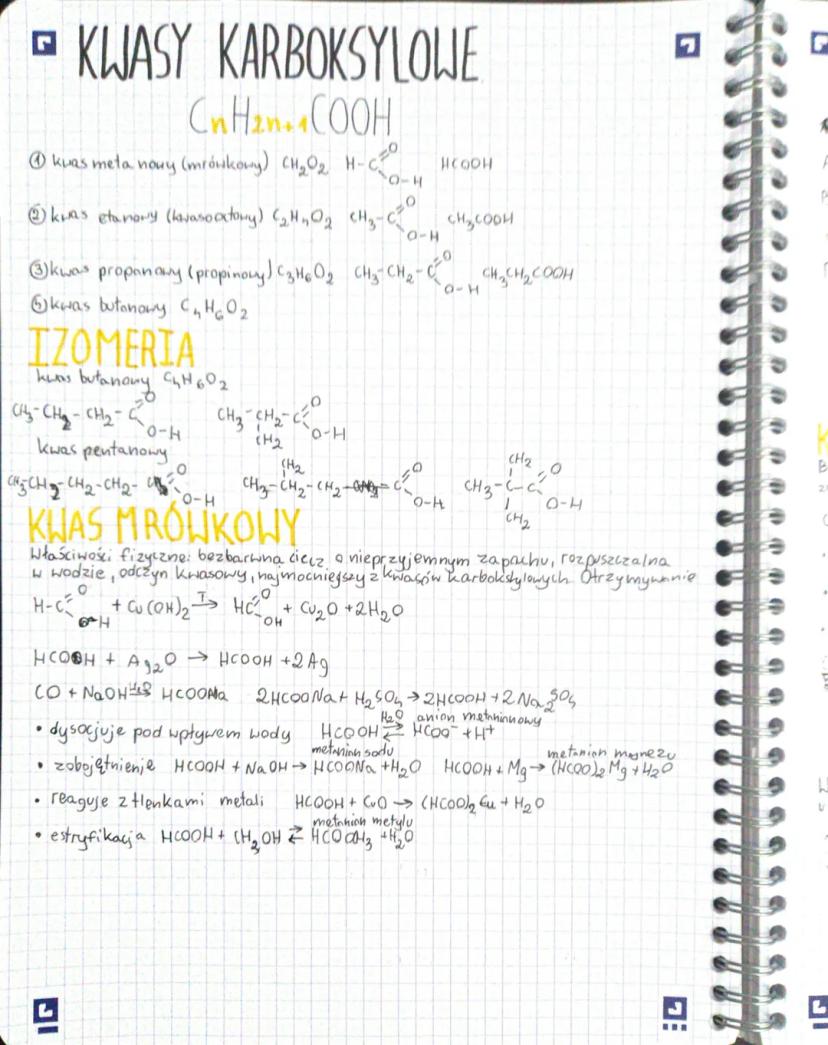 KWASY KARBOKSYLOWE
CnH2n+1COOH
① kwas metanowy (mrówkowy) CH₂O₂ H-C O O-H HCOOH
② kwas etanowy (kwasooctowy) C₂H₄O₂ CH₃-C O O-H CH₃COOH
③ kwas propanowy (propinowy) C₃H₆O₂ CH₃-CH₂-C O O-H CH₃CH₂COOH
⑤ kwas butanowy C₄H₆O₂
IZOMERIA
kwas butanowy C₄H₆O₂
CH₃-CH₂-CH₂-C O O-H CH₃-CH₂-C O O-H CH₂
kwas pentanowy
CH₃-CH₂-CH₂-CH₂- O O-H CH₃-CH₂-CH₂ CH₂ C O O-H CH₃-C-C CH₂ CH₂ O O-H
KWAS MRÓWKOWY
Właściwości fizyczne: bezbarwna ciecz o nieprzyjemnym zapachu, rozpuszczalna
w wodzie, odczyn kwasowy, najmocniejszy z kwasów karboksylowych Otrzymywanie
H-C O O-H + Cu(OH)₂ T→ HC O OH + Cu₂O + 2H₂O
HCOOH + Ag₂O → HCOOH + 2Ag
CO + NaOH H₂O→ HCOONa 2HCOONa + H₂SO₄ → 2HCOOH + 2Na₂SO₄
• dysocjuje pod wpływem wody HCOOH H₂O⇄ HCOO⁻ + H⁺ anion metaninowy
• zobojętnienie HCOOH + NaOH → HCOONa + H₂O metanian sodu HCOOH + Mg → (HCOO)₂Mg + H₂O metanian magnezu
• reaguje z tlenkami metali HCOOH + CuO → (HCOO)₂Cu + H₂O
• estryfikacja HCOOH + CH₃OH ⇄ HCOOCH₃ + H₂O metanian metylu